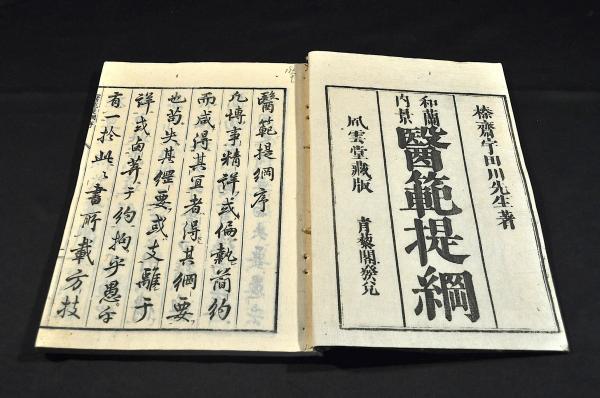 榛齋宇田川先生著
和蘭
内景
醫範提綱
風雲堂藏版 青藜閣發兌
醫範提綱序
凡博事精詳或偏執簡約
而咸得其宜者得其綱要
也苟失其經要或支離于
詳或鹵莽于約拘乎愚乎
有一於此書所載方技